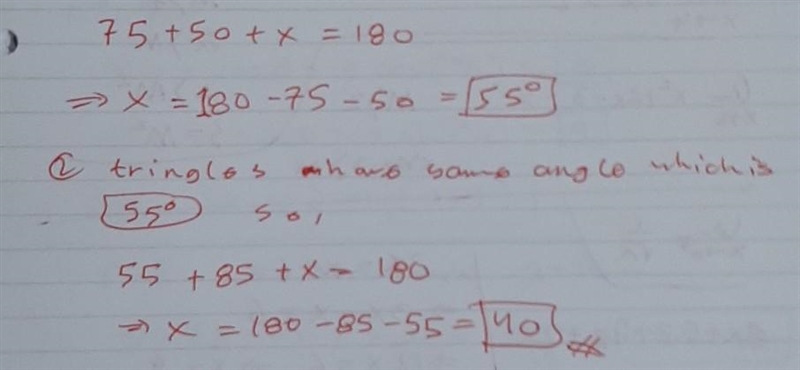 75 + 50 + x = 180
⇒ x = 180 - 75 - 50 = 55°
② tringles have same angle which is
55° so,
55 + 85 + x = 180
⇒ x = 180 - 85 - 55 = 40